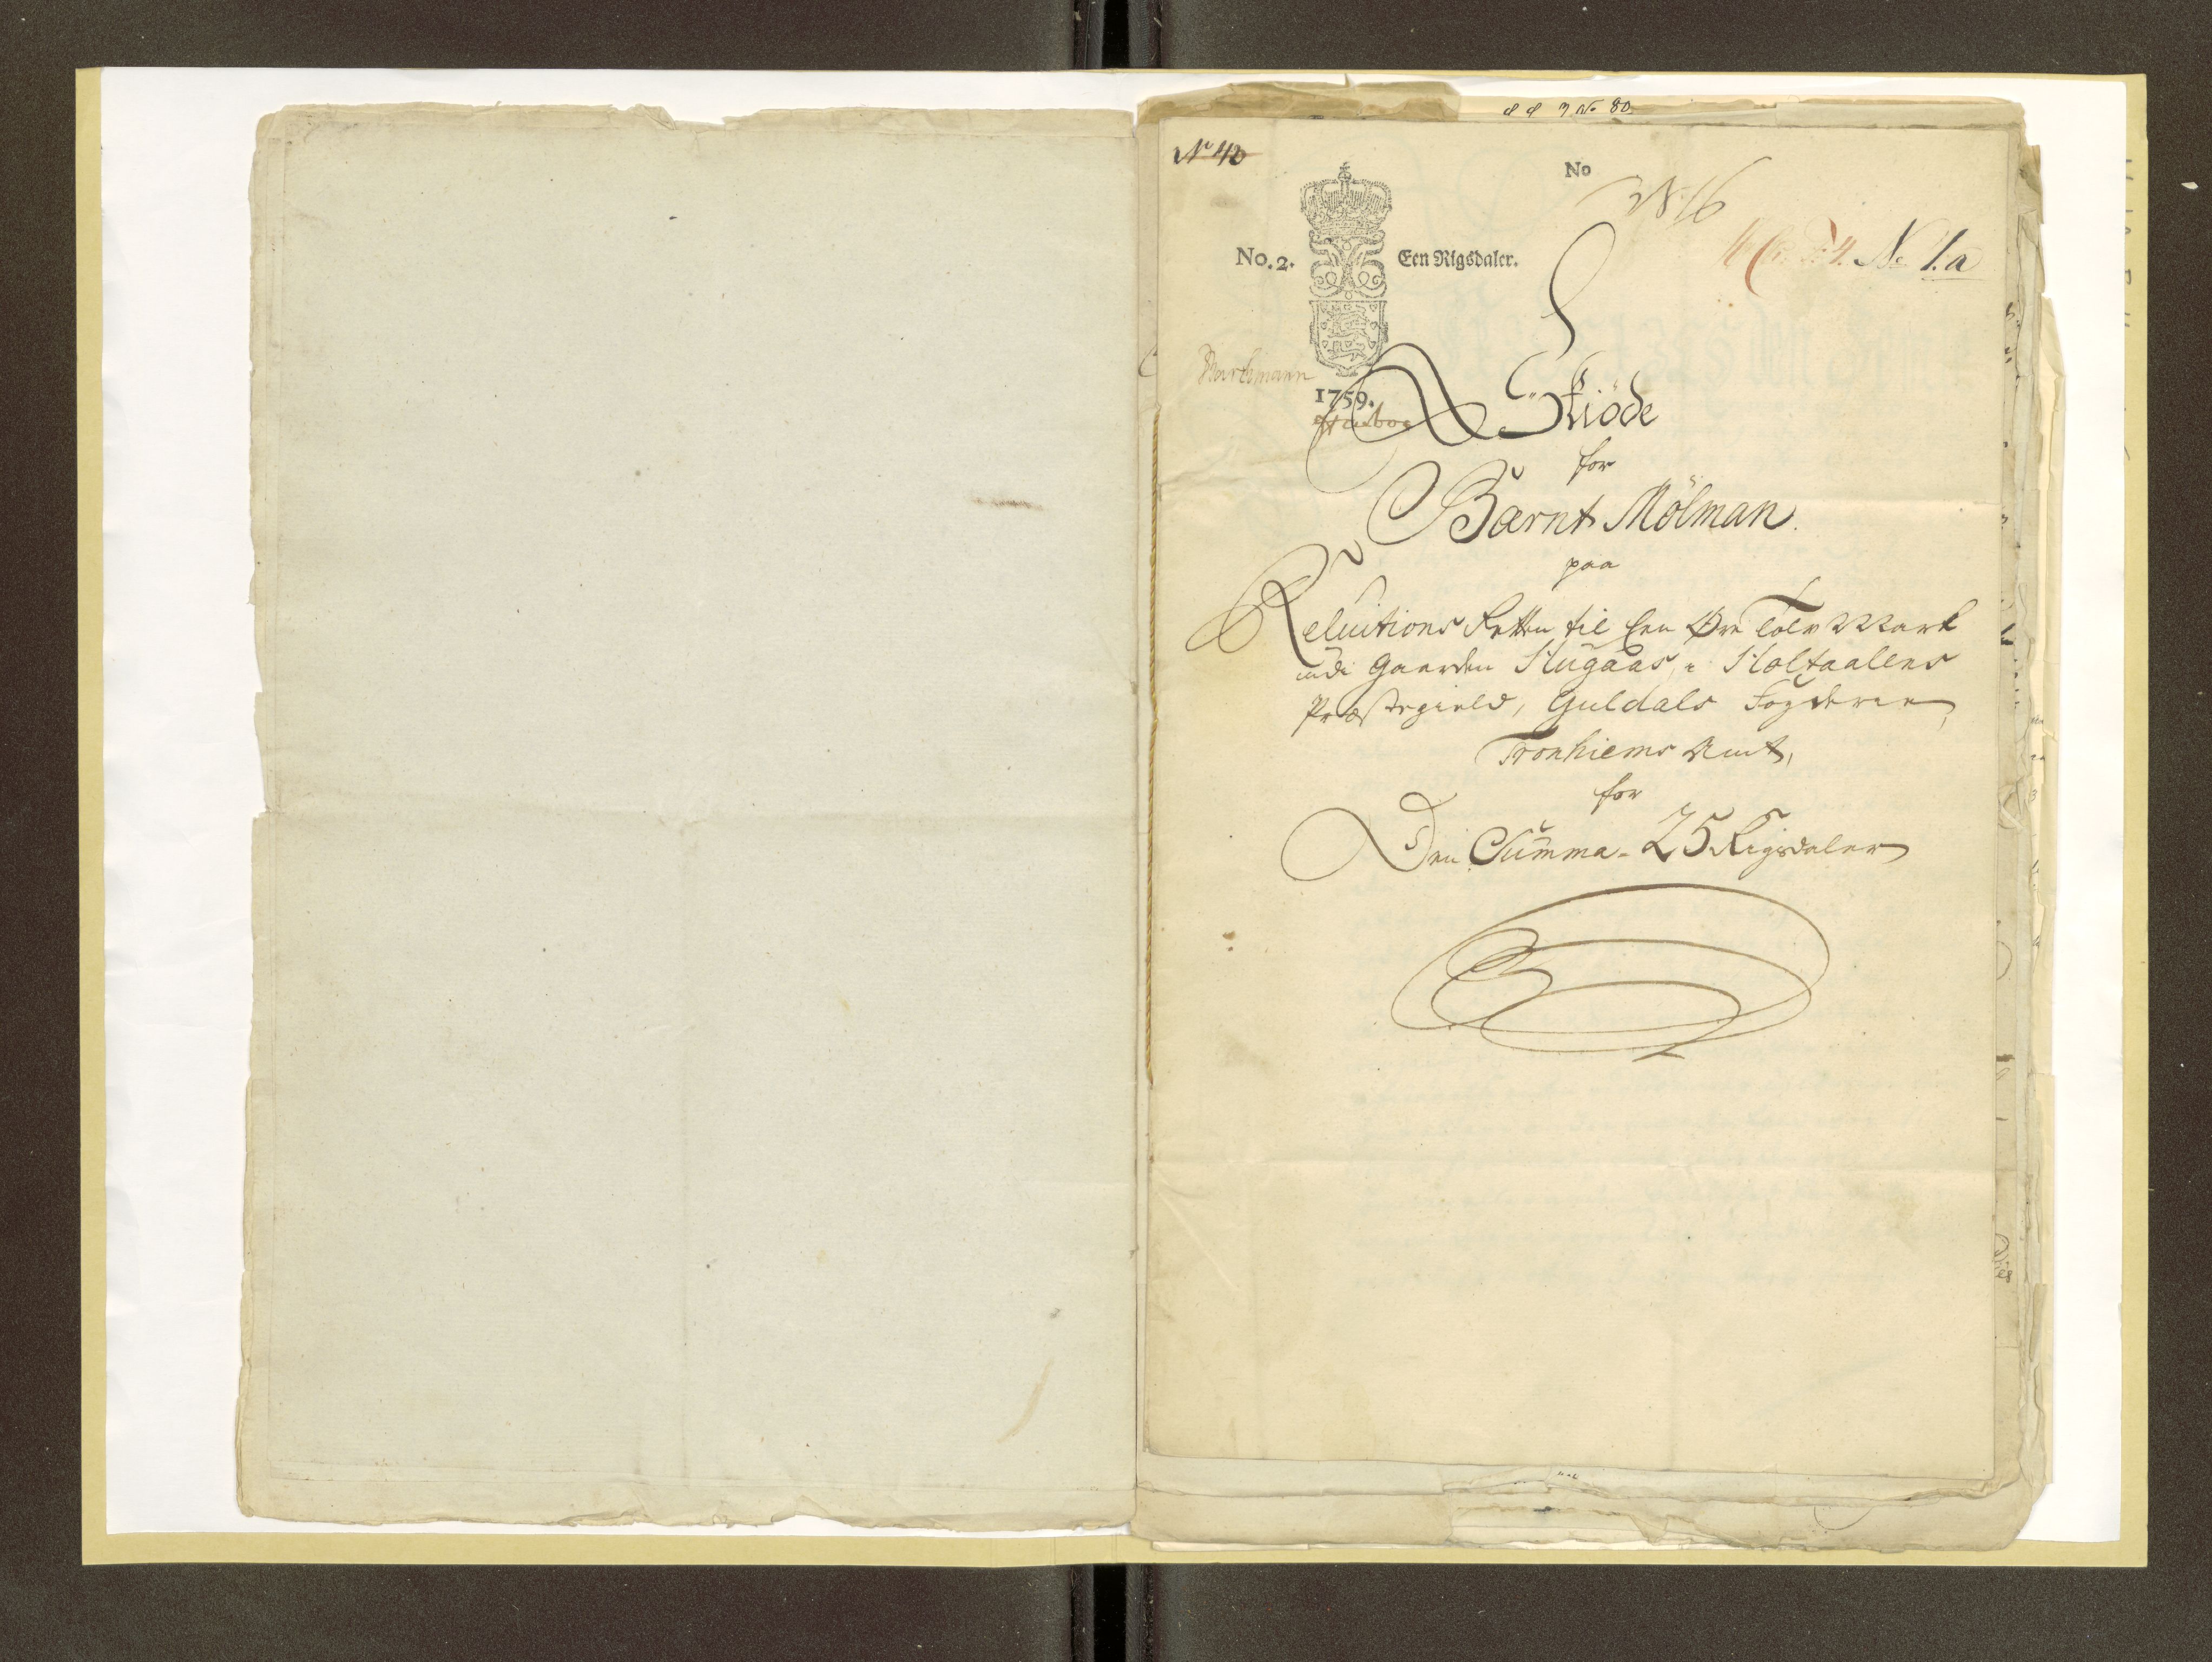 No 80
No 40
No
No 16
No. 2.
Een Rigsdaler.
No 1. a
1759.
Skiöde
for
Bärnt Mölman.
paa
Reluitions Retten til Een Øre Tolv Mark
udi Gaarden Hugaas, i Holtaalens
Præstegield, Guldals Fogderie,
Tronhiems Amt,
for
Den Summa - 25 Rigsdaler